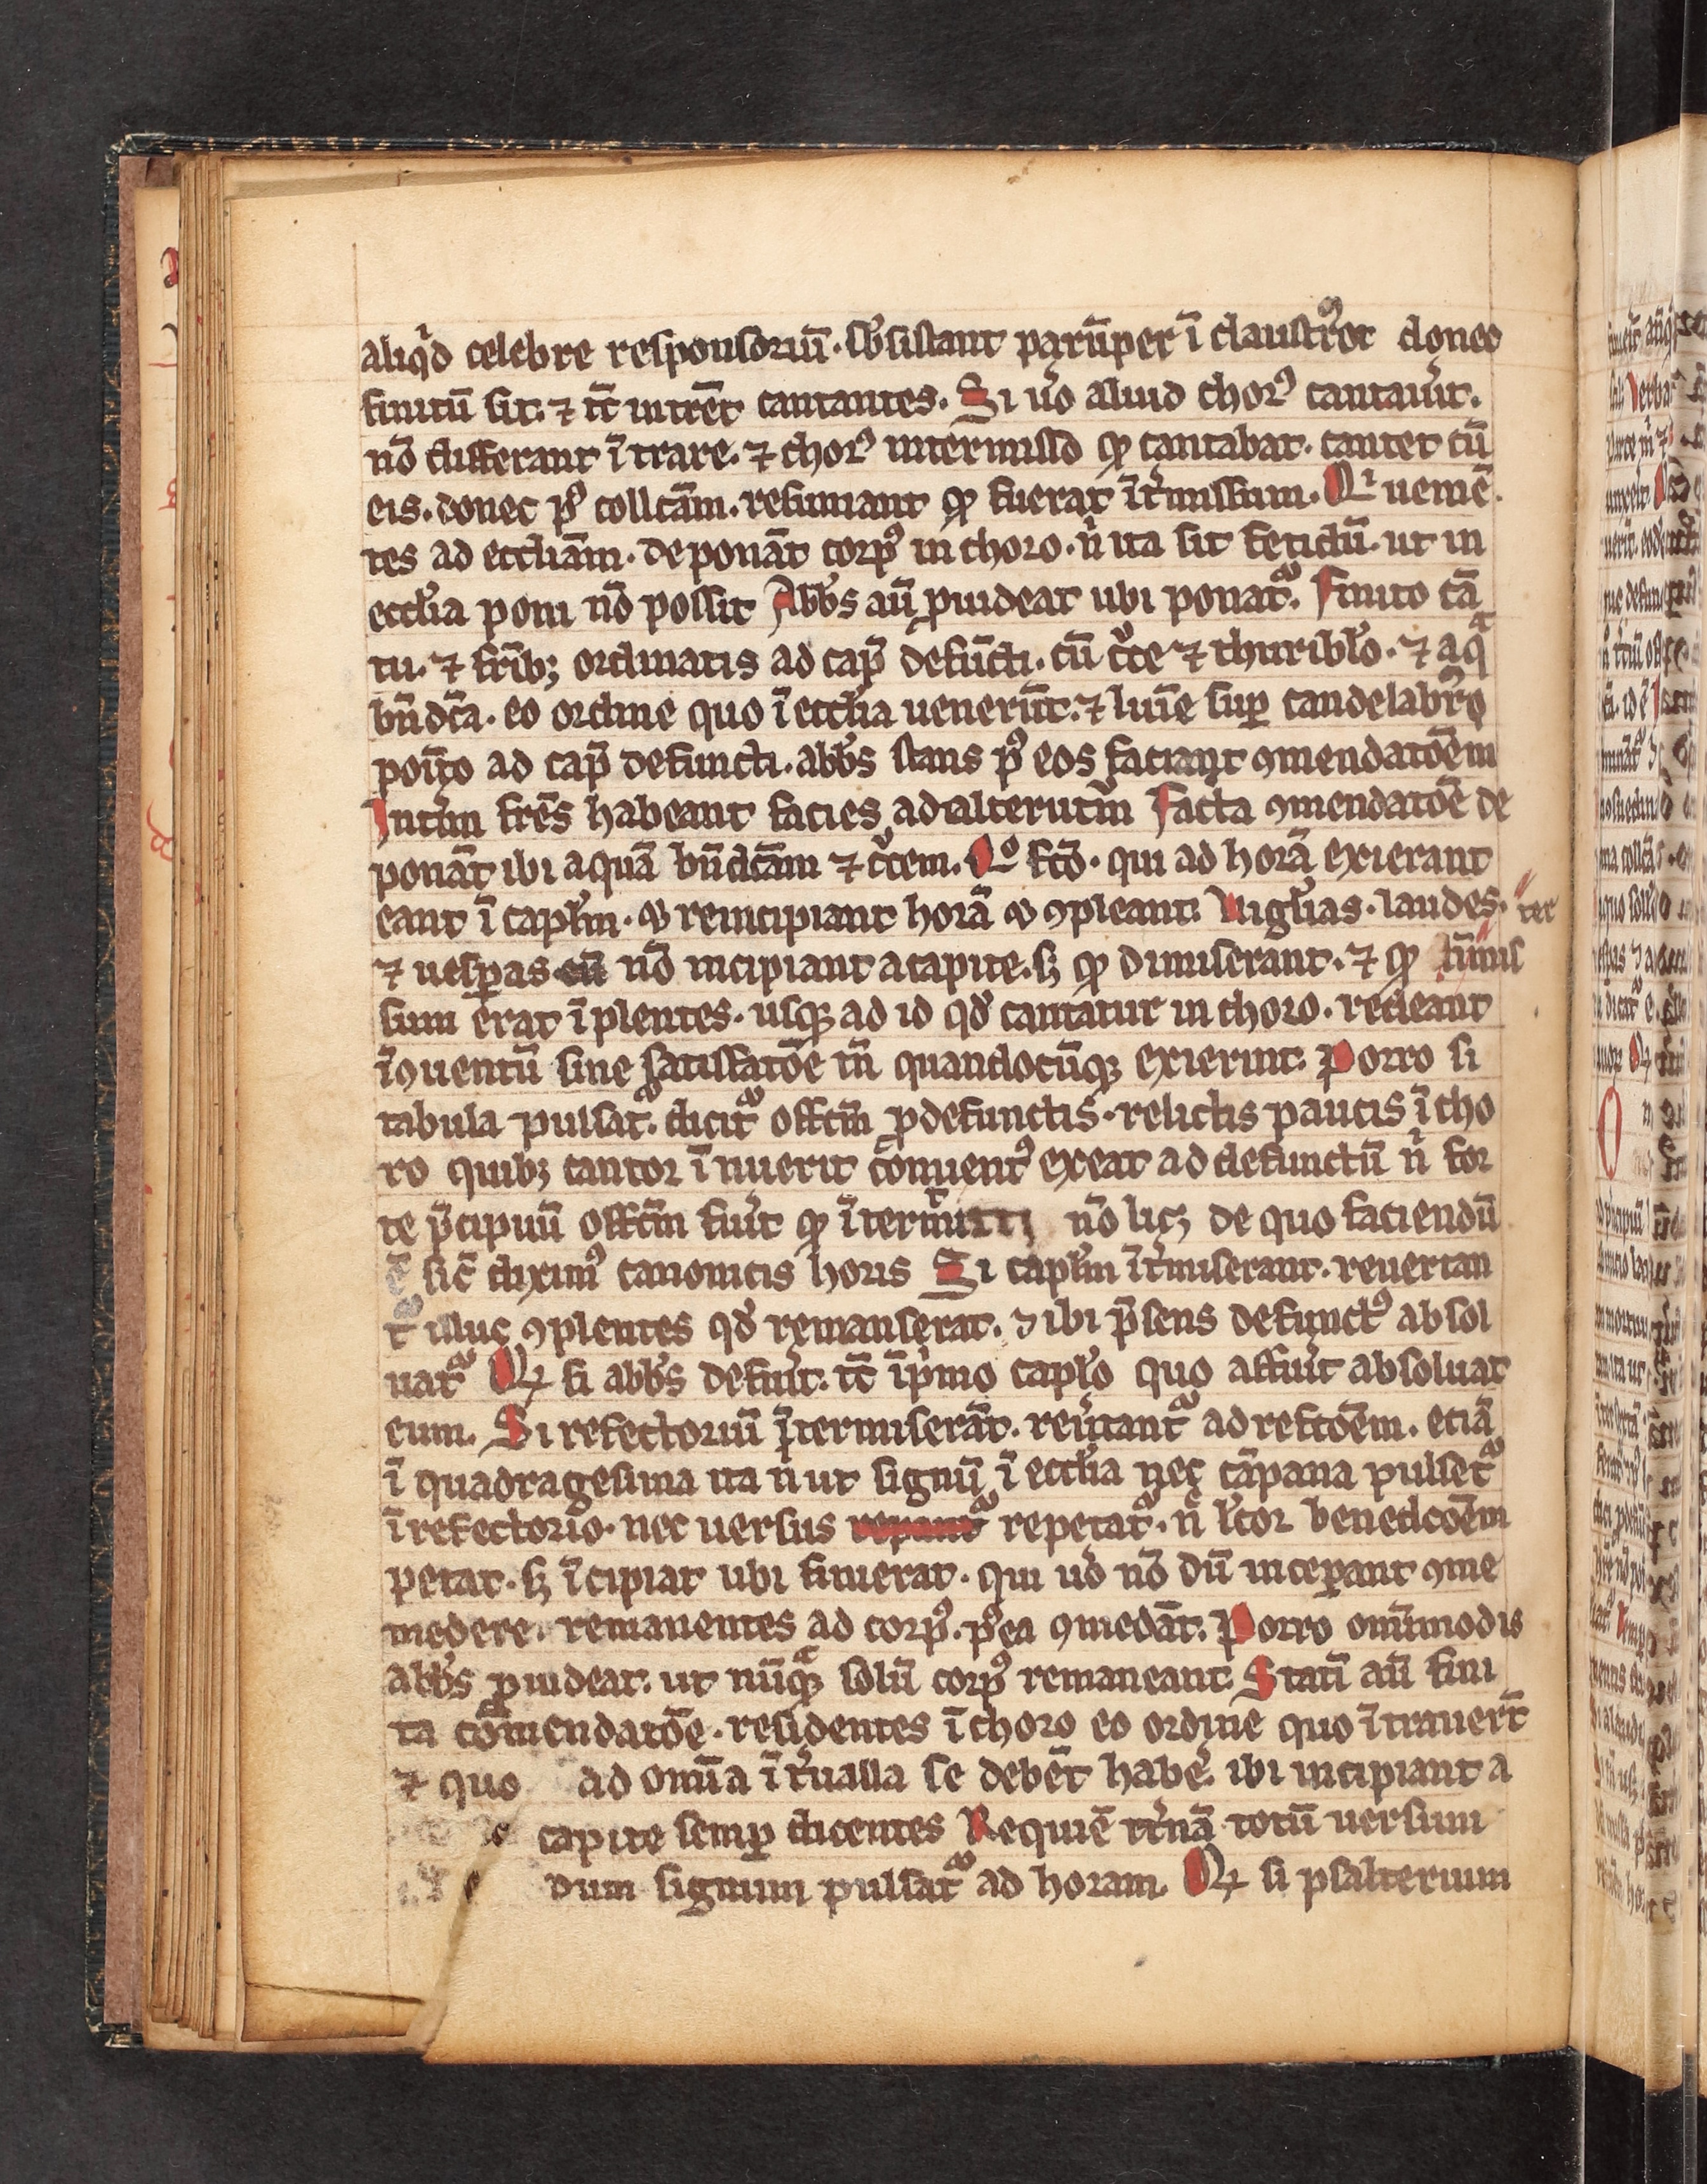 aliq̇d celebre responsoriū. sb̓sistant parūper ī claustror donec
finitū sit. ⁊ tc̄ intrēt cantantes. Si ůo aliud chorꝰ cantaůit.
nō differant ītrare. ⁊ chorꝰ intermisso qͦ cantabat. cantet cū
eis. donec pꝰ collcām. resumant qͦ fuerat īt̓missum. Qi ueniē
tes ad eccliām. deponāt corpꝰ in choro. ṅ ita sit fetidū. ut in
eccl̓ia poni nō possit Abb̓s aū ꝓuideat ubi ponat᷑. Finito cā
tu. ⁊ frīb; ordinatis ad cap̄ defūcti. cū c̓ce ⁊ thuribl̓o. ⁊ aq̄
bn̄dc̄a. eo ordine quo ī eccl̓ia uenerūt. ⁊ lumīe suꝑ candelabro
poīto ad cap̄ defuncti. abb̓s stans pꝰ eos faciant ꝯmendatoēm
Int̓im frēs habeant facies ad alterutrū̄ Facta ꝯmendatoē de
ponāt ibi aquā bn̄dcām ⁊ c̓cem. Qͦ fcō. qui ad horā exierant
eant ī capl̓m. ꝉ reincipiant horā ꝉ ꝯpleant. Uigl̓ias. laudes.
⁊ uesꝑas nō incipiant a capite. sꝫ qͦ dimiserant. ⁊ qͦ
sum erat īplentes. usqꝫ ad id qd̓ cantatur in choro. redeant
ī ꝯuentū sine satisfatōe tn̄ quandocūqꝫ exierint. Porro si
tabula pulsat᷑. dicit᷑ offcīm ꝓdefunctis. relictis paucis ī cho
ro quibꝫ cantor īnuerit cōnuentꝰ exeat ad defunctū ṅ for
te p̄cipuū offcīm fuit̓ qͦ ītermitti nō licꝫ de quo faciendū
ē sic̄ diximꝰ canonicis horis Si capl̓m īt̓miserant. reuertan
t᷑ illuc ꝯplentes qd̓ remanserat. ⁊ ibi p̄sens defunctꝰ absol
uat᷑ Qꝫ si abb̓s defuit̓. tc̄ īpͥmo capl̓o quo affuit̓ absoluat
eum. Si refectoriū p̄termiserāt. reůtant᷑ ad reftoēm. etiā
ī quadragesima ita ṅ ut signū ī eccl̓ia nec cāpana pulset᷑
ī refectorio. nec uersus repetat᷑. ṅ lc̓tor benedcoēm
petat. sꝫ īcipiat ubi finierat. qui ůo nō dū inceꝑant ꝯme
medere. remanentes ad corpꝰ. pꝰea ꝯmedāt. Porro omīmodis
abb̓s ꝓuideat. ut nūqꝫ solū corpꝰ remaneant. Statī aū fini
ta cōmendatōe. residentes ī choro eo ordine quo ītrauerīt
⁊ quo ad omīa īt̓ualla se debēt habe̓. ibi incipiant a
capite semꝑ dicentes Requiē et̓nā totū uersum
dum signum pulsat᷑ ad horam. Qꝫ si psalterium